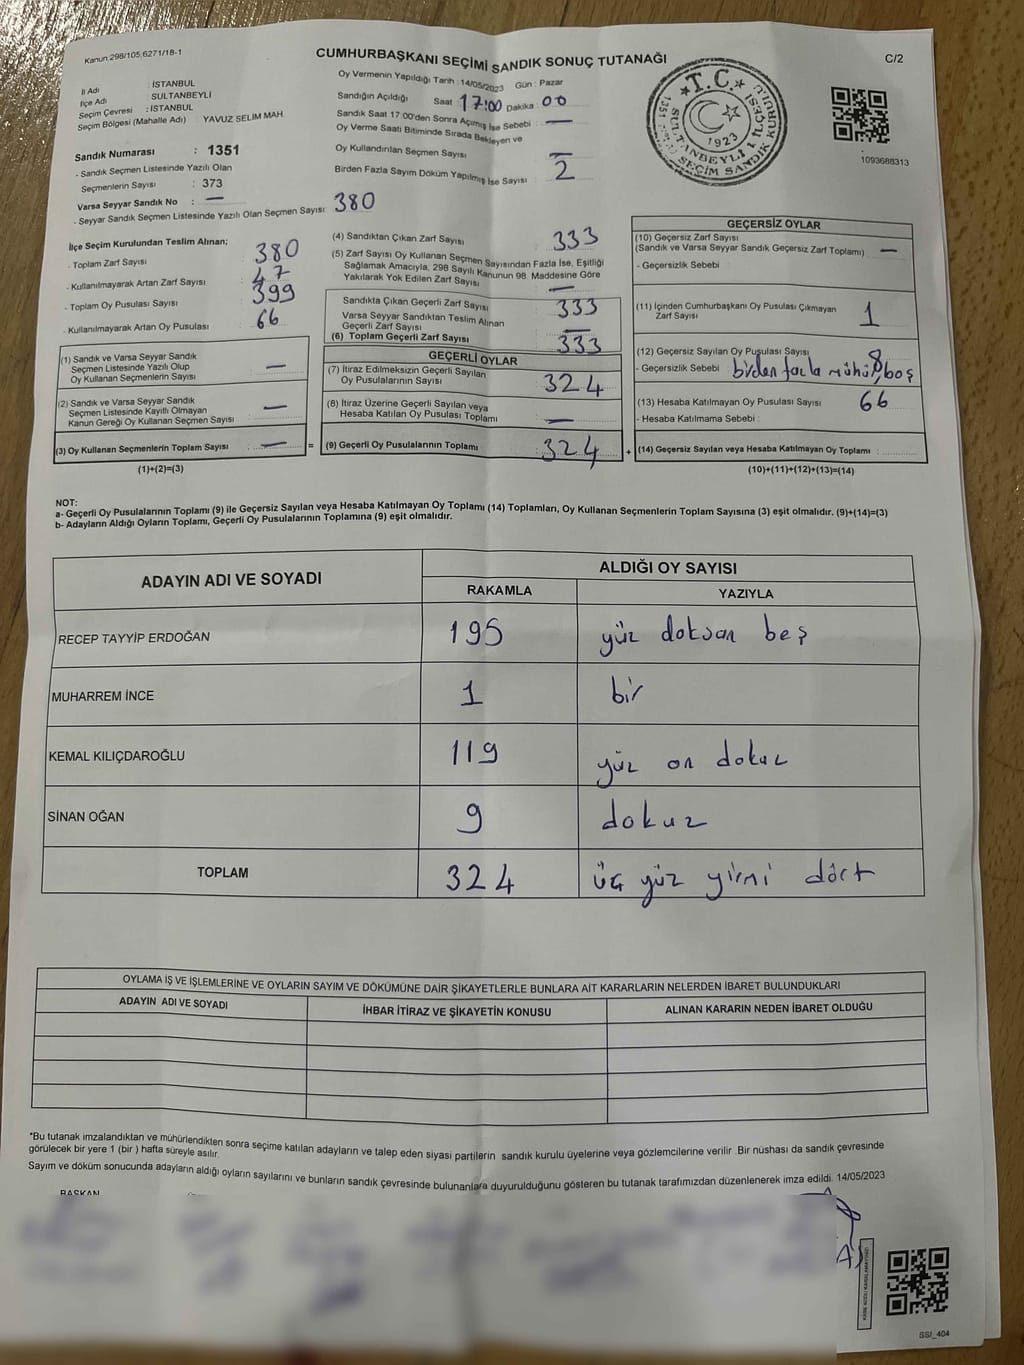 Kanun:298/105,6271/18-1
CUMHURBAŞKANI SEÇİMİ SANDIK SONUÇ TUTANAĞI
C/2
İl Adı : İSTANBUL
İlçe Adı : SULTANBEYLİ
Seçim Çevresi : İSTANBUL
Seçim Bölgesi (Mahalle Adı) YAVUZ SELIM MAH
Sandık Numarası : 1351
- Sandık Seçmen Listesinde Yazılı Olan
Seçmenlerin Sayısı : 373
Varsa Seyyar Sandık No : —
- Seyyar Sandık Seçmen Listesinde Yazılı Olan Seçmen Sayısı: 380
Oy Vermenin Yapıldığı Tarih : 14/05/2023 Gün : Pazar
Sandığın Açıldığı Saat 17:00 Dakika 00
Sandık Saat 17:00'den Sonra Açılmış İse Sebebi : —
Oy Verme Saati Bitiminde Sırada Bekleyen ve
Oy Kullandırılan Seçmen Sayısı —
Birden Fazla Sayım Döküm Yapılmış İse Sayısı : 2
T.C.
1923
SULTANBEYLİ 1. İLÇESİ
1351 SEÇİM SANDIK KURULU
1093688313
İlçe Seçim Kurulundan Teslim Alınan;
- Toplam Zarf Sayısı : 380
- Kullanılmayarak Artan Zarf Sayısı : 47
- Toplam Oy Pusulası Sayısı : 399
- Kullanılmayarak Artan Oy Pusulası : 66
(1) Sandık ve Varsa Seyyar Sandık
Seçmen Listesinde Yazılı Olup
Oy Kullanan Seçmenlerin Sayısı : —
(2) Sandık ve Varsa Seyyar Sandık
Seçmen Listesinde Kayıtlı Olmayan
Kanun Gereği Oy Kullanan Seçmen Sayısı : —
(3) Oy Kullanan Seçmenlerin Toplam Sayısı : — =
(1)+(2)=(3)
(4) Sandıktan Çıkan Zarf Sayısı : 333
(5) Zarf Sayısı Oy Kullanan Seçmen Sayısından Fazla İse, Eşitliği
Sağlamak Amacıyla, 298 Sayılı Kanunun 98. Maddesine Göre
Yakılarak Yok Edilen Zarf Sayısı : —
Sandıkta Çıkan Geçerli Zarf Sayısı : 333
Varsa Seyyar Sandıktan Teslim Alınan
Geçerli Zarf Sayısı : —
(6) Toplam Geçerli Zarf Sayısı : 333
GEÇERLİ OYLAR
(7) İtiraz Edilmeksizin Geçerli Sayılan
Oy Pusulalarının Sayısı : 324
(8) İtiraz Üzerine Geçerli Sayılan veya
Hesaba Katılan Oy Pusulası Toplamı : —
(9) Geçerli Oy Pusulalarının Toplamı : 324 +
GEÇERSİZ OYLAR
(10) Geçersiz Zarf Sayısı
(Sandık ve Varsa Seyyar Sandık Geçersiz Zarf Toplamı) : —
- Geçersizlik Sebebi :
(11) İçinden Cumhurbaşkanı Oy Pusulası Çıkmayan
Zarf Sayısı : 1
(12) Geçersiz Sayılan Oy Pusulası Sayısı : 8
- Geçersizlik Sebebi : birden fazla mühür, boş
(13) Hesaba Katılmayan Oy Pusulası Sayısı : 66
- Hesaba Katılmama Sebebi :
(14) Geçersiz Sayılan veya Hesaba Katılmayan Oy Toplamı :
(10)+(11)+(12)+(13)=(14)
NOT:
a- Geçerli Oy Pusulalarının Toplamı (9) ile Geçersiz Sayılan veya Hesaba Katılmayan Oy Toplamı (14) Toplamları, Oy Kullanan Seçmenlerin Toplam Sayısına (3) eşit olmalıdır. (9)+(14)=(3)
b- Adayların Aldığı Oyların Toplamı, Geçerli Oy Pusulalarının Toplamına (9) eşit olmalıdır.
ADAYIN ADI VE SOYADI
ALDIĞI OY SAYISI
RAKAMLA YAZIYLA
RECEP TAYYİP ERDOĞAN 195 yüz doksan beş
MUHARREM İNCE 1 bir
KEMAL KILIÇDAROĞLU 119 yüz on dokuz
SİNAN OĞAN 9 dokuz
TOPLAM 324 üç yüz yirmi dört
OYLAMA İŞ VE İŞLEMLERİNE VE OYLARIN SAYIM VE DÖKÜMÜNE DAİR ŞİKAYETLERLE BUNLARA AİT KARARLARIN NELERDEN İBARET BULUNDUKLARI
ADAYIN ADI VE SOYADI İHBAR İTİRAZ VE ŞİKAYETİN KONUSU ALINAN KARARIN NEDEN İBARET OLDUĞU
*Bu tutanak imzalandıktan ve mühürlendikten sonra seçime katılan adayların ve talep eden siyasi partilerin sandık kurulu üyelerine veya gözlemcilerine verilir. Bir nüshası da sandık çevresinde
görülecek bir yere 1 (bir ) hafta süreyle asılır.
Sayım ve döküm sonucunda adayların aldığı oyların sayılarını ve bunların sandık çevresinde bulunanlara duyurulduğunu gösteren bu tutanak tarafımızdan düzenlenerek imza edildi. 14/05/2023
BAŞKAN
SSI_404